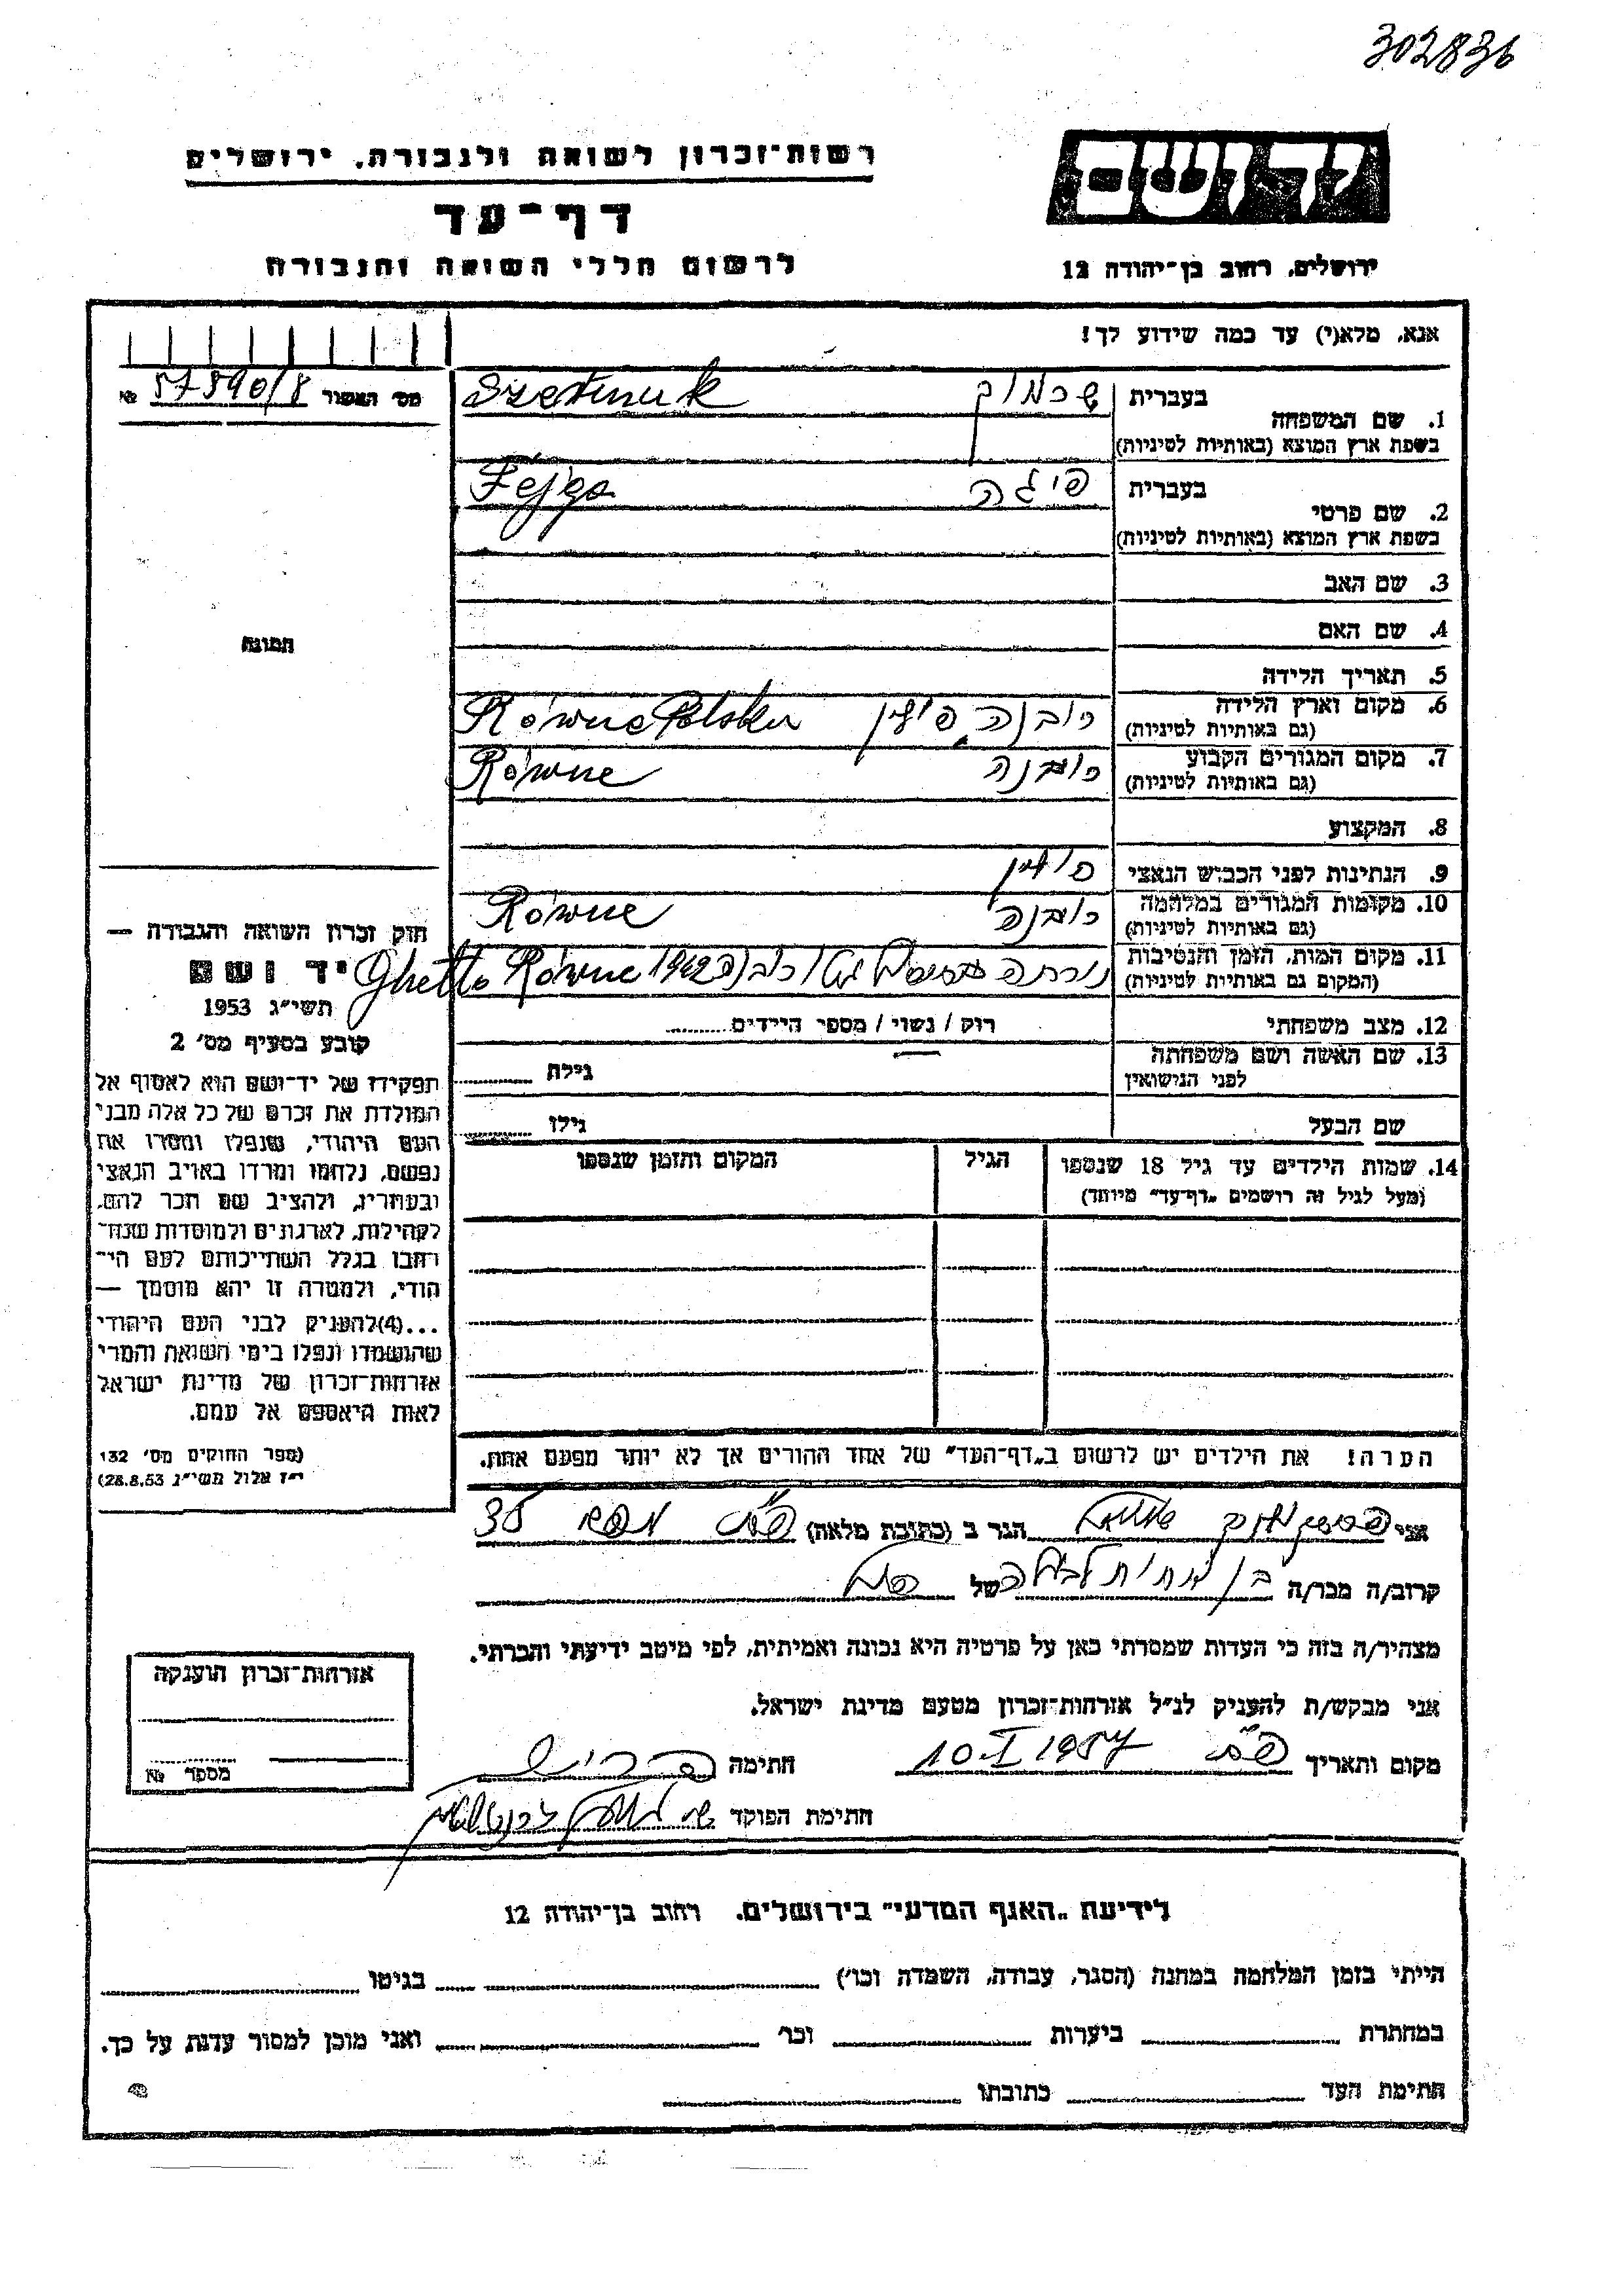 302836
רשות־זכרון לשואה ולגבורה, ירושלים
יד ושם
דף־עד
לרשום חללי השואה והגבורה
ירושלים, רחוב בן־יהודה 12
אנא, מלא(י) עד כמה שידוע לך!
מס' האשור 57590/8 №
1. שם המשפחה בעברית
בשפת ארץ המוצא (באותיות לטיניות)
2. שם פרטי בעברית פיגה Fejga
בשפת ארץ המוצא (באותיות לטיניות)
3. שם האב
4. שם האם
תמונה
5. תאריך הלידה
6. מקום וארץ הלידה רובנה פולין Równe Polska
(גם באותיות לטיניות)
7. מקום המגורים הקבוע רובנה Równe
(גם באותיות לטיניות)
8. המקצוע
9. הנתינות לפני הכבוש הנאצי פולין
10. מקומות המגורים במלחמה רובנה Równe
(גם באותיות לטיניות)
11. מקום המות, הזמן והנסיבות 1942 Ghetto Równe
(המקום גם באותיות לטיניות)
12. מצב משפחתי רוק / נשוי / מספר הילדים
13. שם האשה ושם משפחתה גילה
לפני הנישואין
שם הבעל גילו
14. שמות הילדים עד גיל 18 שנספו הגיל המקום והזמן שנספו
(מעל לגיל זה רושמים „דף־עד" מיוחד)
הערה! את הילדים יש לרשום ב„דף־העד" של אחד ההורים אך לא יותר מפעם אחת.
חוק זכרון השואה והגבורה —
יד ושם
תשי"ג 1953
קובע בסעיף מס' 2
תפקידו של יד־ושם הוא לאסוף אל
המולדת את זכרם של כל אלה מבני
העם היהודי, שנפלו ומסרו את
נפשם, נלחמו ומרדו באויב הנאצי
ובעוזריו, ולהציב שם וזכר להם,
לקהילות, לארגונים ולמוסדות שנח־
רבו בגלל השתייכותם לעם הי־
הודי, ולמטרה זו יהא מוסמך —
...(4)להעניק לבני העם היהודי
שהושמדו ונפלו בימי השואה והמרי
אזרחות־זכרון של מדינת ישראל
לאות היאספם אל עמם.
(ספר החוקים מס' 132
י"ז אלול תשי"ג 28.8.53)
אני הגר ב (כתובת מלאה) 35
קרוב/ה מכר/ה של
מצהיר/ה בזה כי העדות שמסרתי כאן על פרטיה היא נכונה ואמיתית, לפי מיטב ידיעתי והכרתי.
אני מבקש/ת להעניק לנ"ל אזרחות־זכרון מטעם מדינת ישראל.
מקום ותאריך 10.I 1957 חתימה
חתימת הפוקד
אזרחות־זכרון הוענקה
מספר №
לידיעת „האגף המדעי" בירושלים, רחוב בן־יהודה 12
הייתי בזמן המלחמה במחנה (הסגר, עבודה, השמדה וכו') בגיטו
במחתרת ביערות וכו' ואני מוכן למסור עדות על כך.
חתימת העד כתובתו